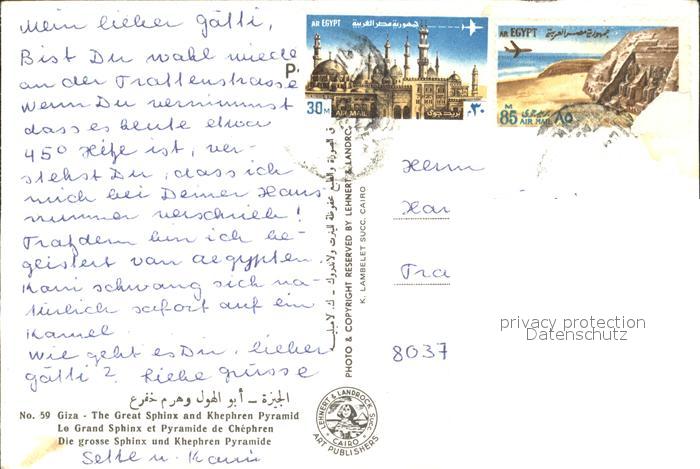 Mein lieber Götti,
Bist Du wohl wieder
an der Trottenstrasse
Wenn Du vernimmst
dass es heute etwa
45° Hitze ist, ver-
stehst Du, dass ich
mich bei Deiner Haus
nummer verschrieb!
Trotzdem bin ich be-
geistert von Aegypten.
Karin schwang sich na-
türlich sofort auf ein
Kamel.
Wie geht es Dir, lieber
Götti? Liebe Grüsse
الجيزة - أبو الهول وهرم خفرع
No. 59 Giza - The Great Sphinx and Khephren Pyramid
Le Grand Sphinx et Pyramide de Chéphren
Die grosse Sphinx und Khephren Pyramide
u. Karin
P.
AR EGYPT جمهورية مصر العربية
30 M
AIR MAIL بريد جوى
٣٠ م
AR EGYPT جمهورية مصر العربية
M
85 AIR MAIL بريد جوى ٨٥
PHOTO & COPYRIGHT RESERVED BY LEHNERT & LANDROC
K. LAMBELET SUCC. CAIRO
LEHNERT & LANDROCK Succ.
CAIRO
ART PUBLISHERS
Herrn
Har
Tro
8037
privacy protection
Datenschutz